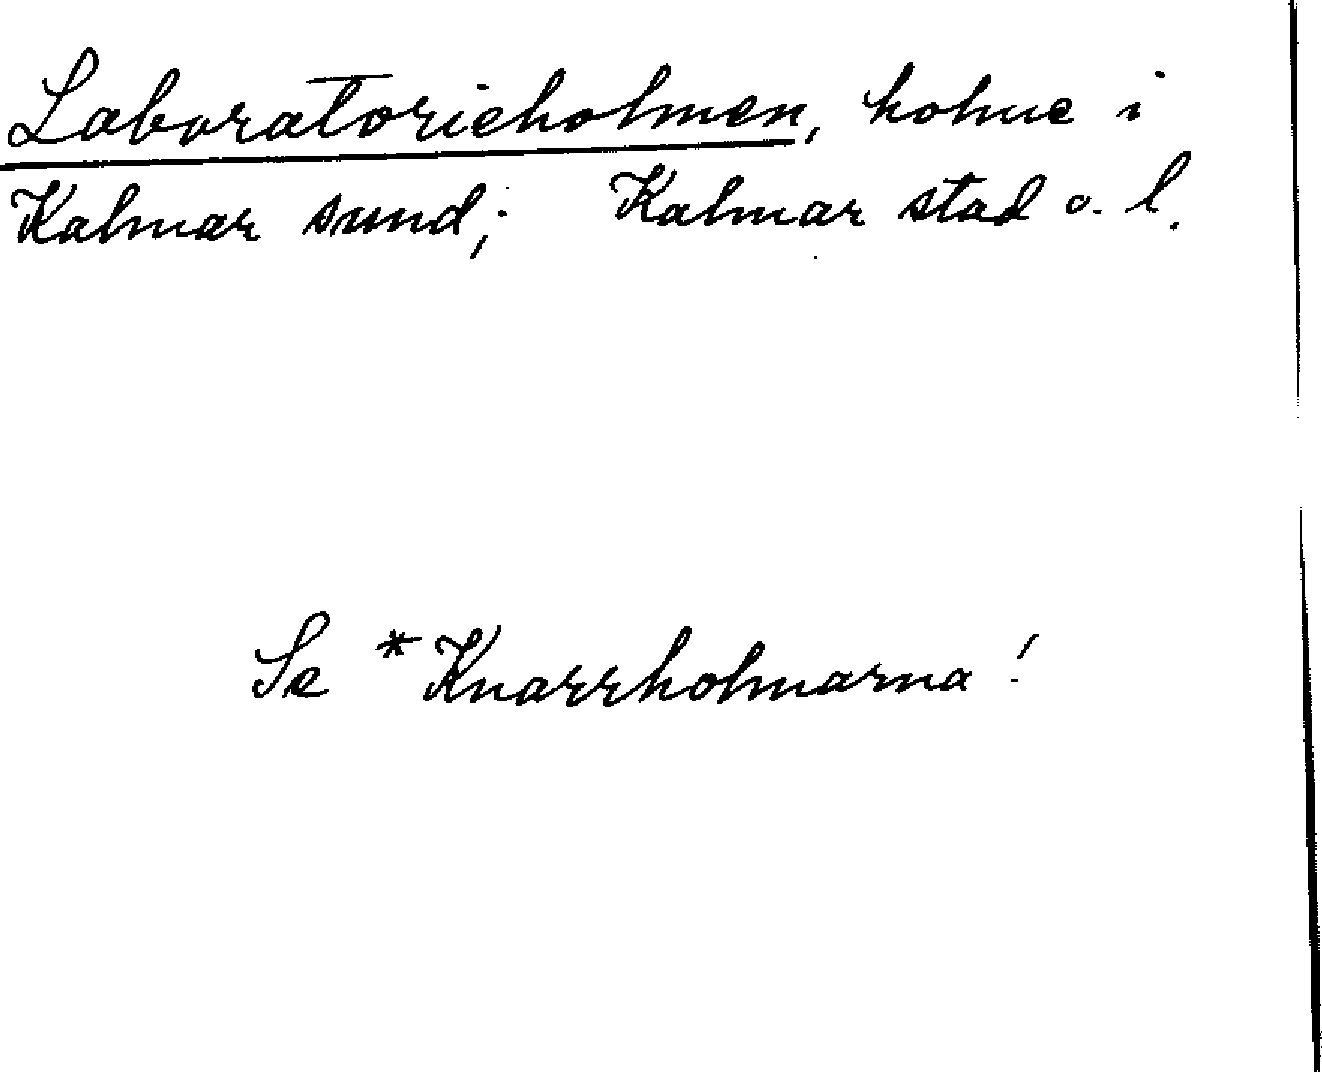 Laboratorieholmen, holme i
Kalmar sund; Kalmar stad o. l.
Se *Knarrholmarna!